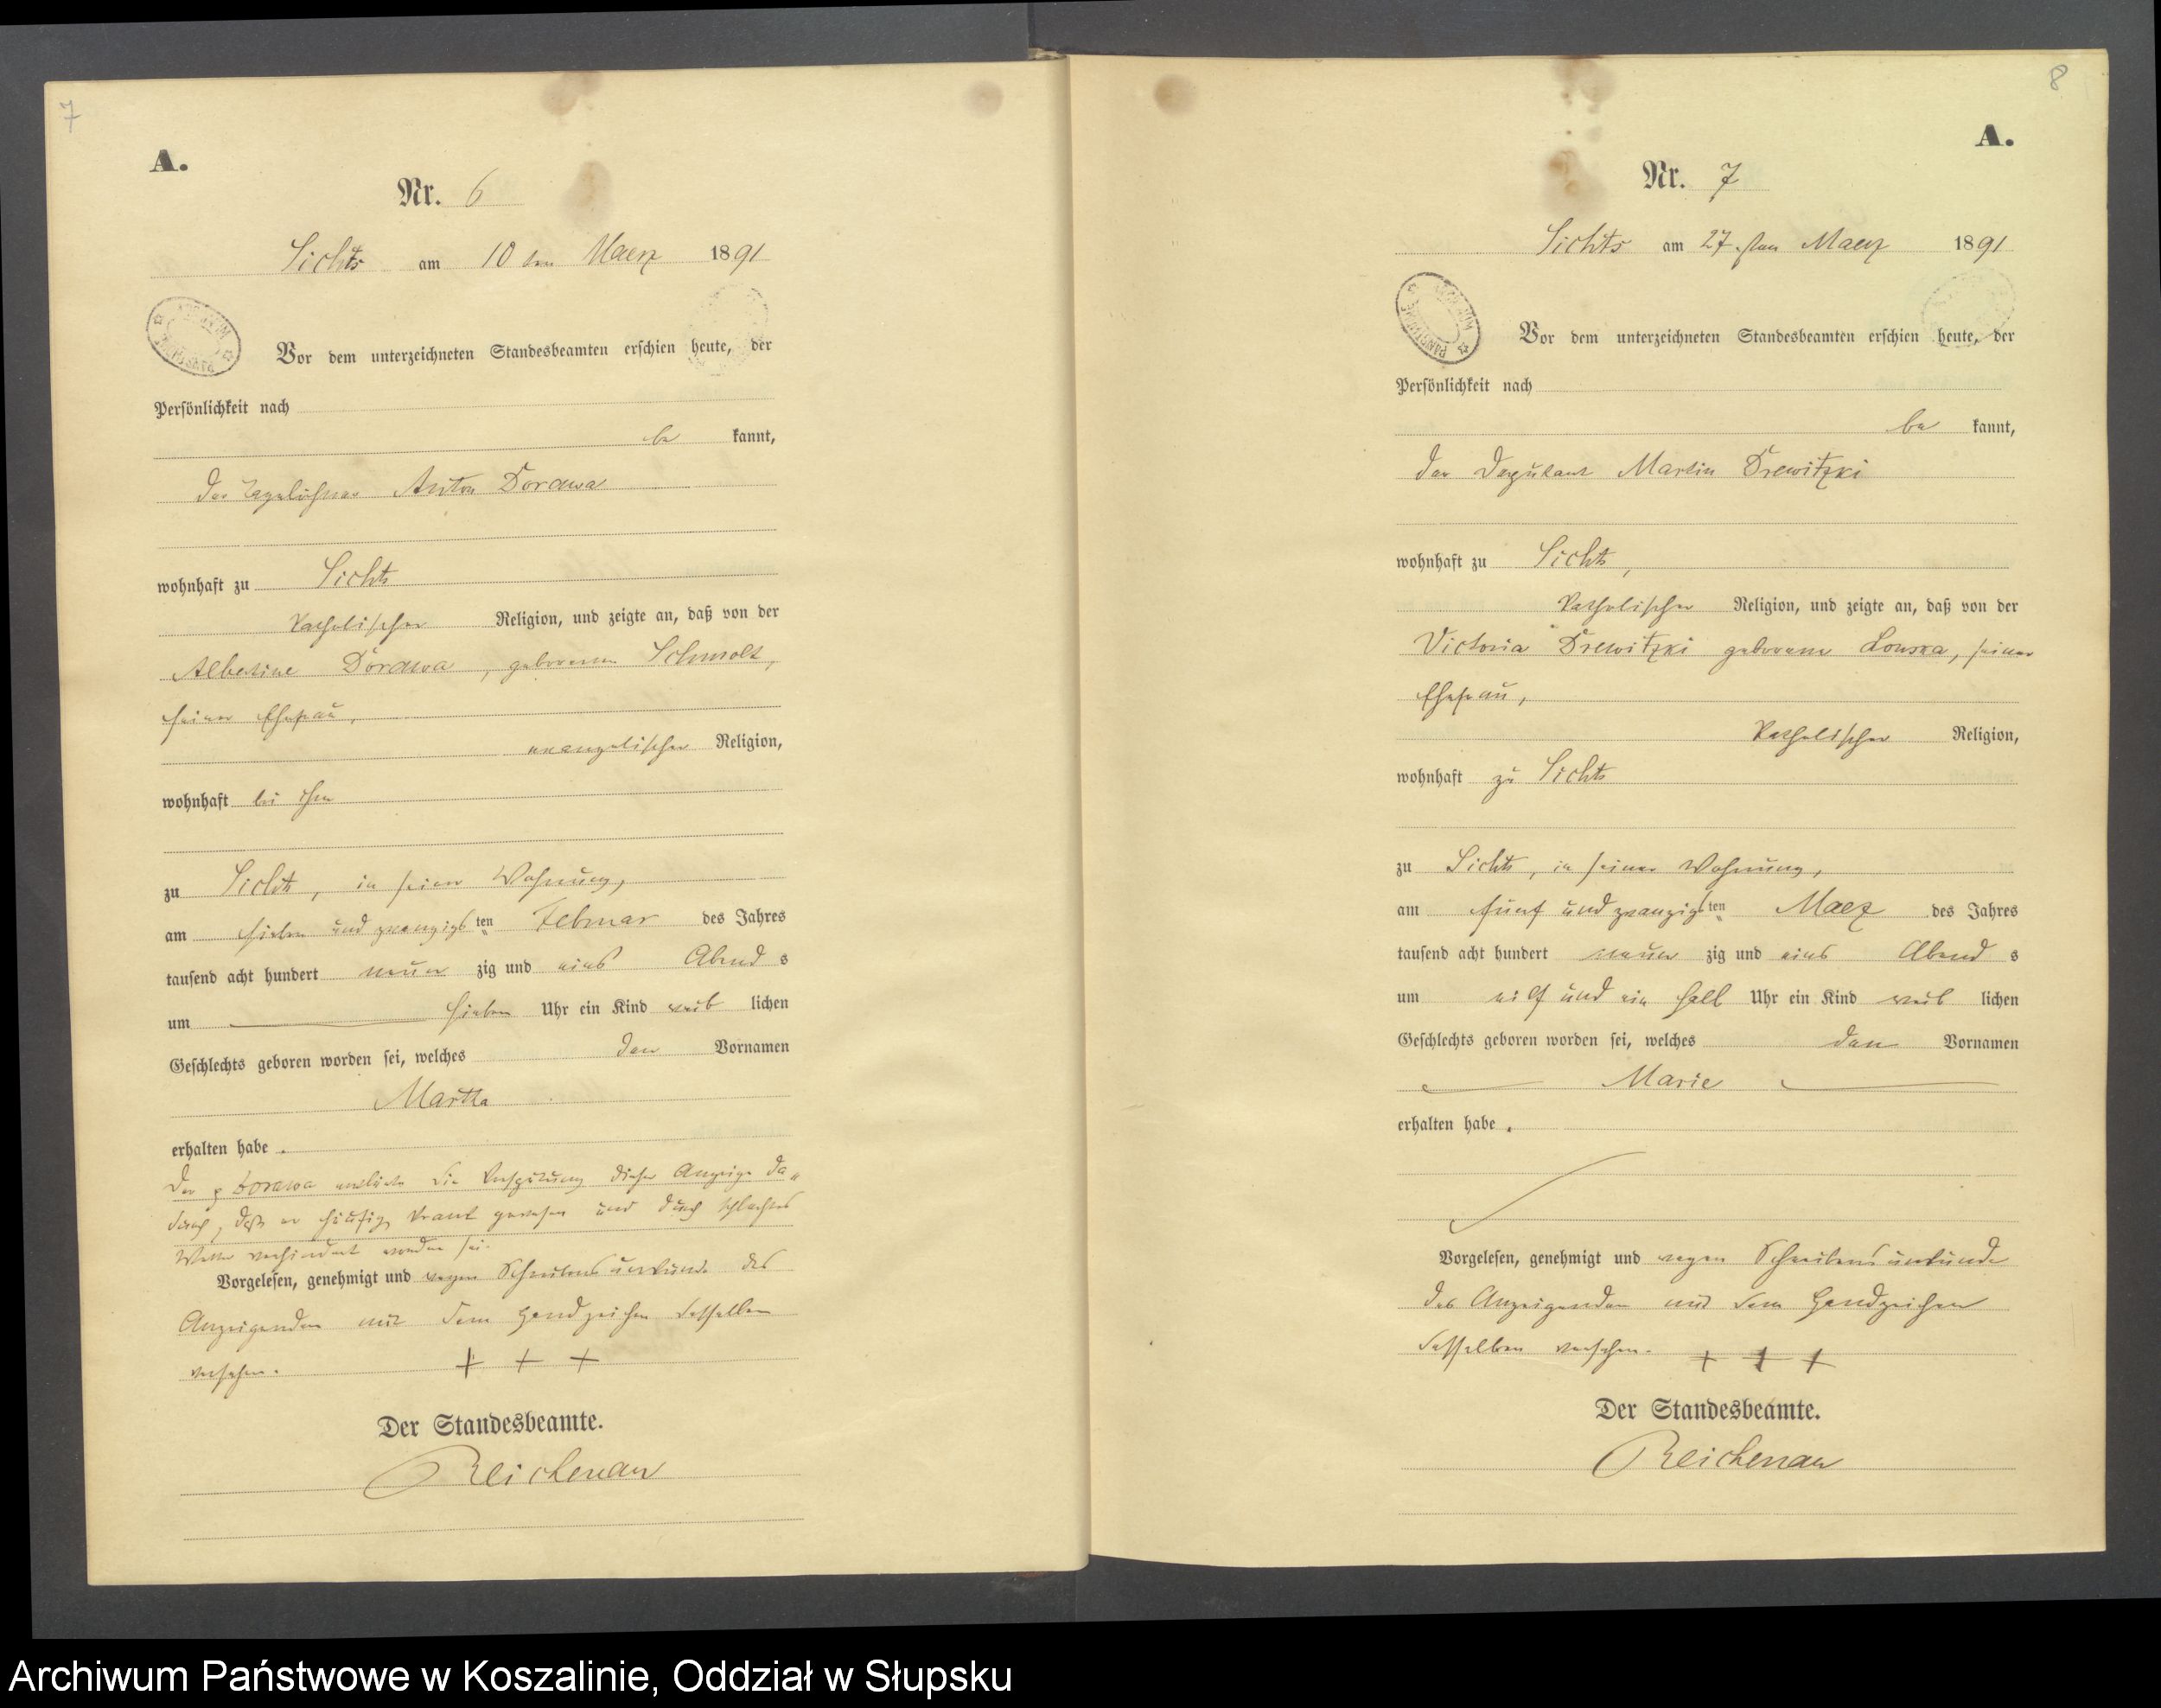 7
A.
Nr. 6
Sichts am 10 ten Maerz 1891
Vor dem unterzeichneten Standesbeamten erschien heute, der
Persönlichkeit nach
be kannt,
der Tagelöhner Anton Dorawa
wohnhaft zu Sichts
katholischer Religion, und zeigte an, daß von der
Albertine Dorawa, geborenen Schmolt,
seiner Ehefrau,
evangelischer Religion,
wohnhaft bei ihm
zu Sichts, in seiner Wohnung,
am sieben und zwanzigsten Februar des Jahres
tausend acht hundert neun zig und eins Abend s
um sieben Uhr ein Kind weib lichen
Geschlechts geboren worden sei, welches den Vornamen
Martha
erhalten habe.
Der p Dorawa erklärte die Verspätung dieser Anzeige da„
durch, daß er häufig krank gewesen und durch schlechtes
Wetter verhindert worden sei.
Vorgelesen, genehmigt und wegen Schreibensunkunde des
Anzeigenden mit dem Handzeichen desselben
versehen. + + +
Der Standesbeamte.
Reichenau
8
A.
Nr. 7
Sichts am 27 sten Maerz 1891
Vor dem unterzeichneten Standesbeamten erschien heute, der
Persönlichkeit nach
be kannt,
der Deputant Martin Drewitzki
wohnhaft zu Sichts,
katholischer Religion, und zeigte an, daß von der
Victoria Drewitzki geborene Lonska, seiner
Ehefrau,
katholischer Religion,
wohnhaft zu Sichts
zu Sichts, in seiner Wohnung,
am fünf und zwanzigsten Maerz des Jahres
tausend acht hundert neun zig und eins Abend s
um eilf und ein halb Uhr ein Kind weib lichen
Geschlechts geboren worden sei, welches den Vornamen
Marie
erhalten habe.
Vorgelesen, genehmigt und wegen Schreibensunkunde
des Anzeigenden mit dem Handzeichen
desselben versehen. + + +
Der Standesbeamte.
Reichenau
Archiwum Państwowe w Koszalinie, Oddział w Słupsku